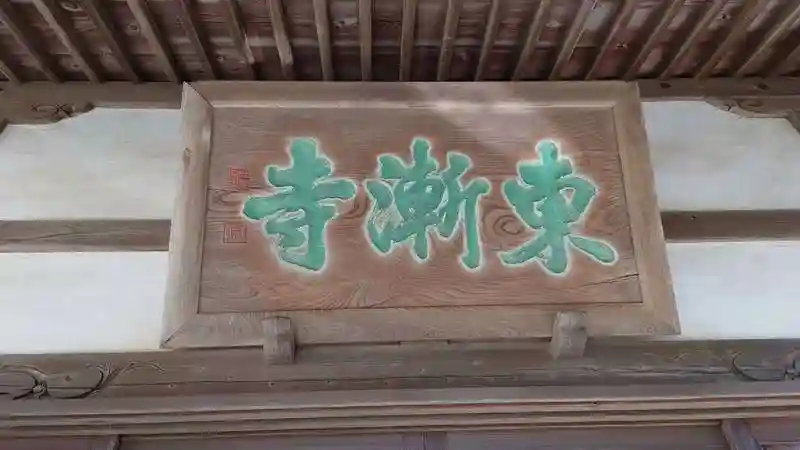 東漸寺